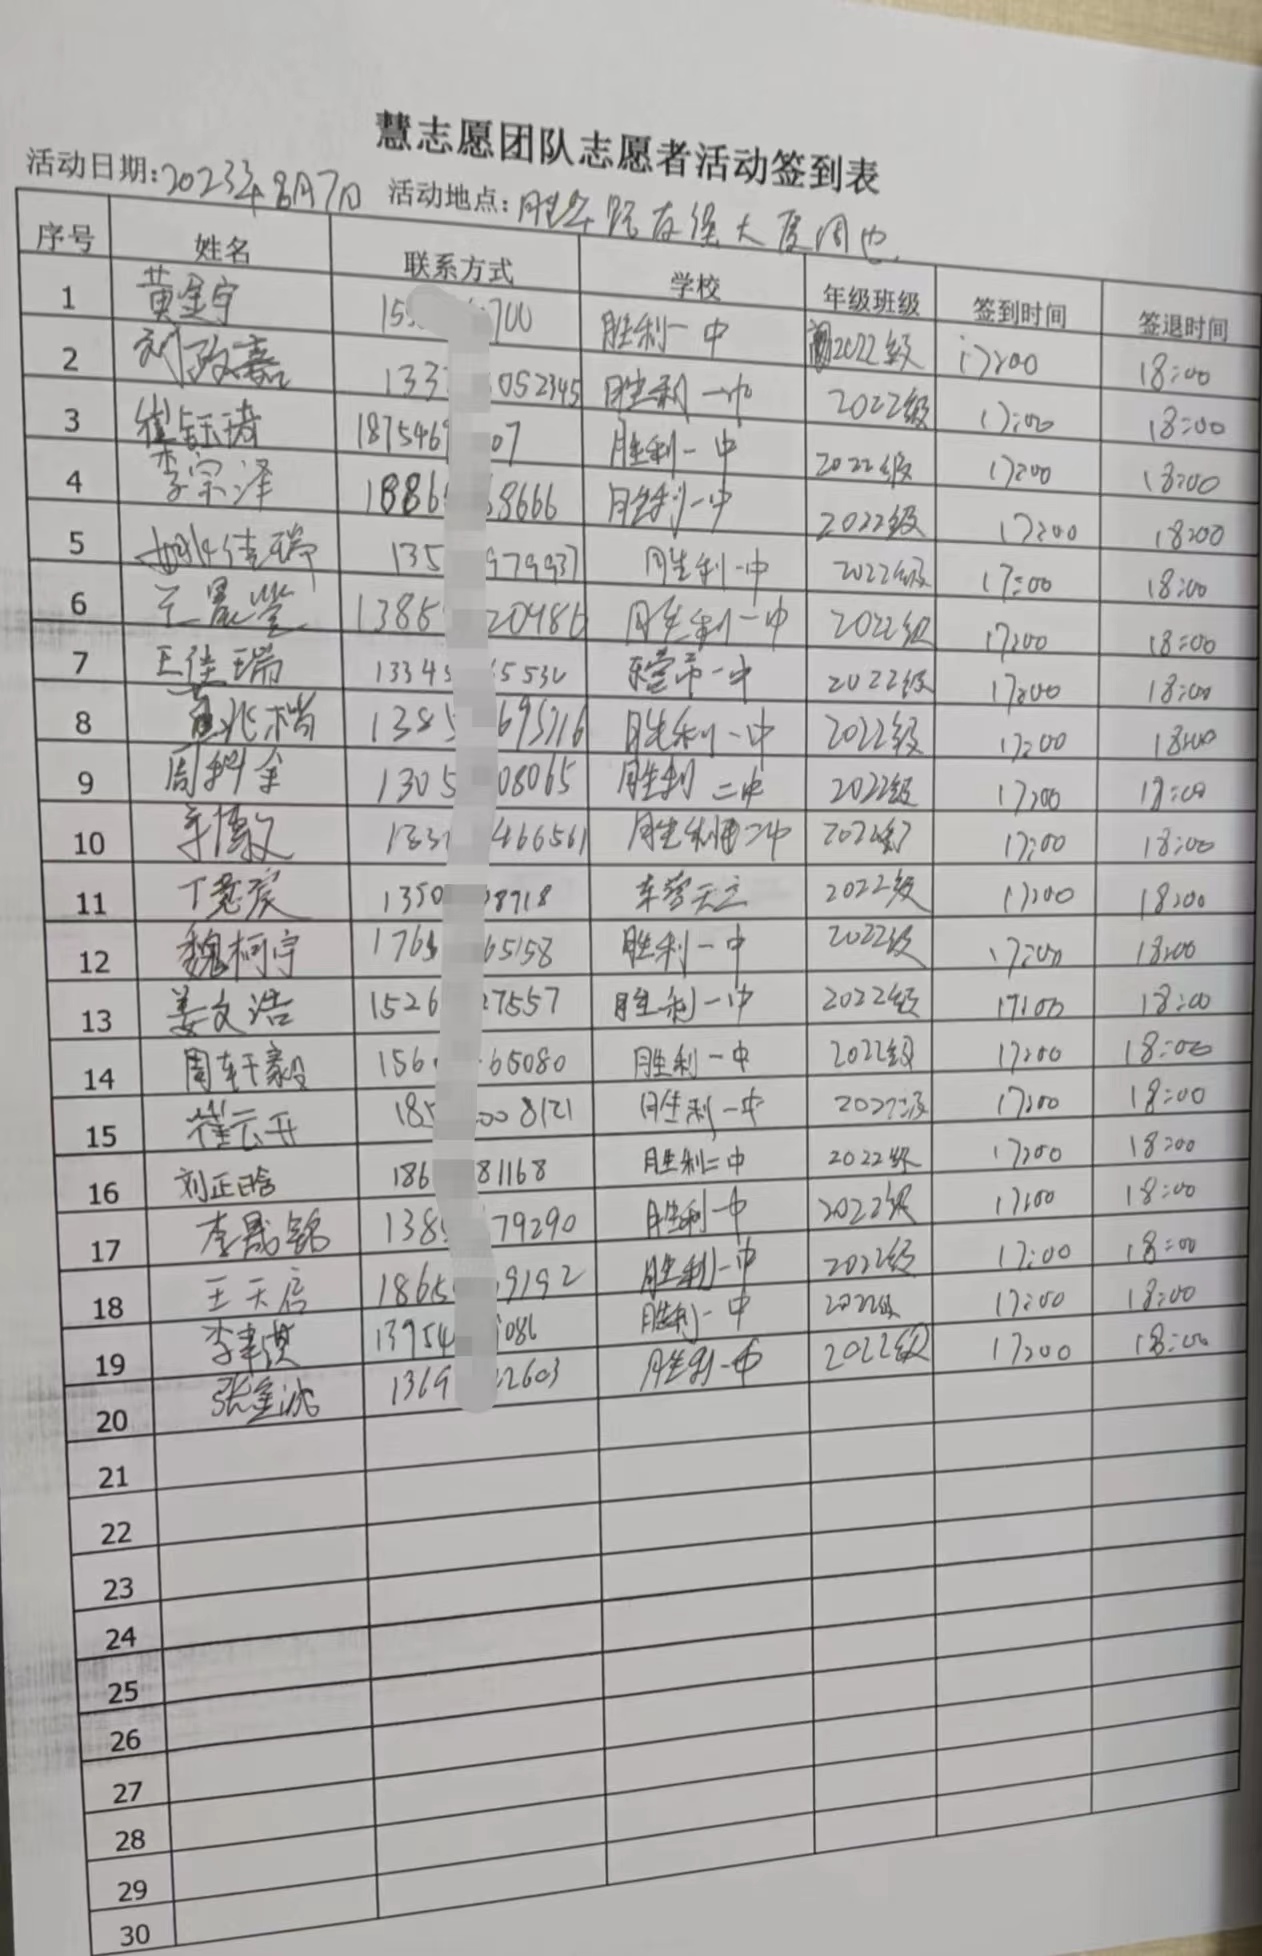 慧志愿团队志愿者活动签到表
活动日期:2023年8月7日 活动地点:胜 路 大厦周边
序号 姓名 联系方式 学校 年级班级 签到时间 签退时间
1 黄金宇 15 700 胜利一中 2022级 17:00 18:00
2 刘政嘉 133 052345 胜利一中 2022级 17:00 18:00
3 崔钰琦 1875469 07 胜利一中 2022级 17:00 18:00
4 李宗泽 1886 8666 胜利一中 2022级 17:00 18:00
5 姚佳瑞 135 979937 胜利一中 2022级 17:00 18:00
6 王 1385 20486 胜利一中 2022级 17:00 18:00
7 王佳瑞 13345 5530 东营市一中 2022级 17:00 18:00
8 1385 695716 胜利一中 2022级 17:00 18:00
9 周科全 1305 08065 胜利二中 2022级 17:00 18:00
10 李博文 133 466561 胜利二中 2022级 17:00 18:00
11 丁 宸 1350 8718 东营天立 2022级 17:00 18:00
12 魏柯宇 1763 65158 胜利一中 2022级 17:00 18:00
13 姜文浩 1526 27557 胜利一中 2022级 17:00 18:00
14 周轩毅 156 65080 胜利一中 2022级 17:00 18:00
15 崔云开 185 008121 胜利一中 2022级 17:00 18:00
16 刘正晗 186 81168 胜利二中 2022级 17:00 18:00
17 李晟铭 1385 79290 胜利一中 2022级 17:00 18:00
18 王天启 1865 9192 胜利一中 2022级 17:00 18:00
19 李 13954 086 胜利一中 2022级 17:00 18:00
20 张 1369 2603 胜利一中 2022级 17:00 18:00
21
22
23
24
25
26
27
28
29
30